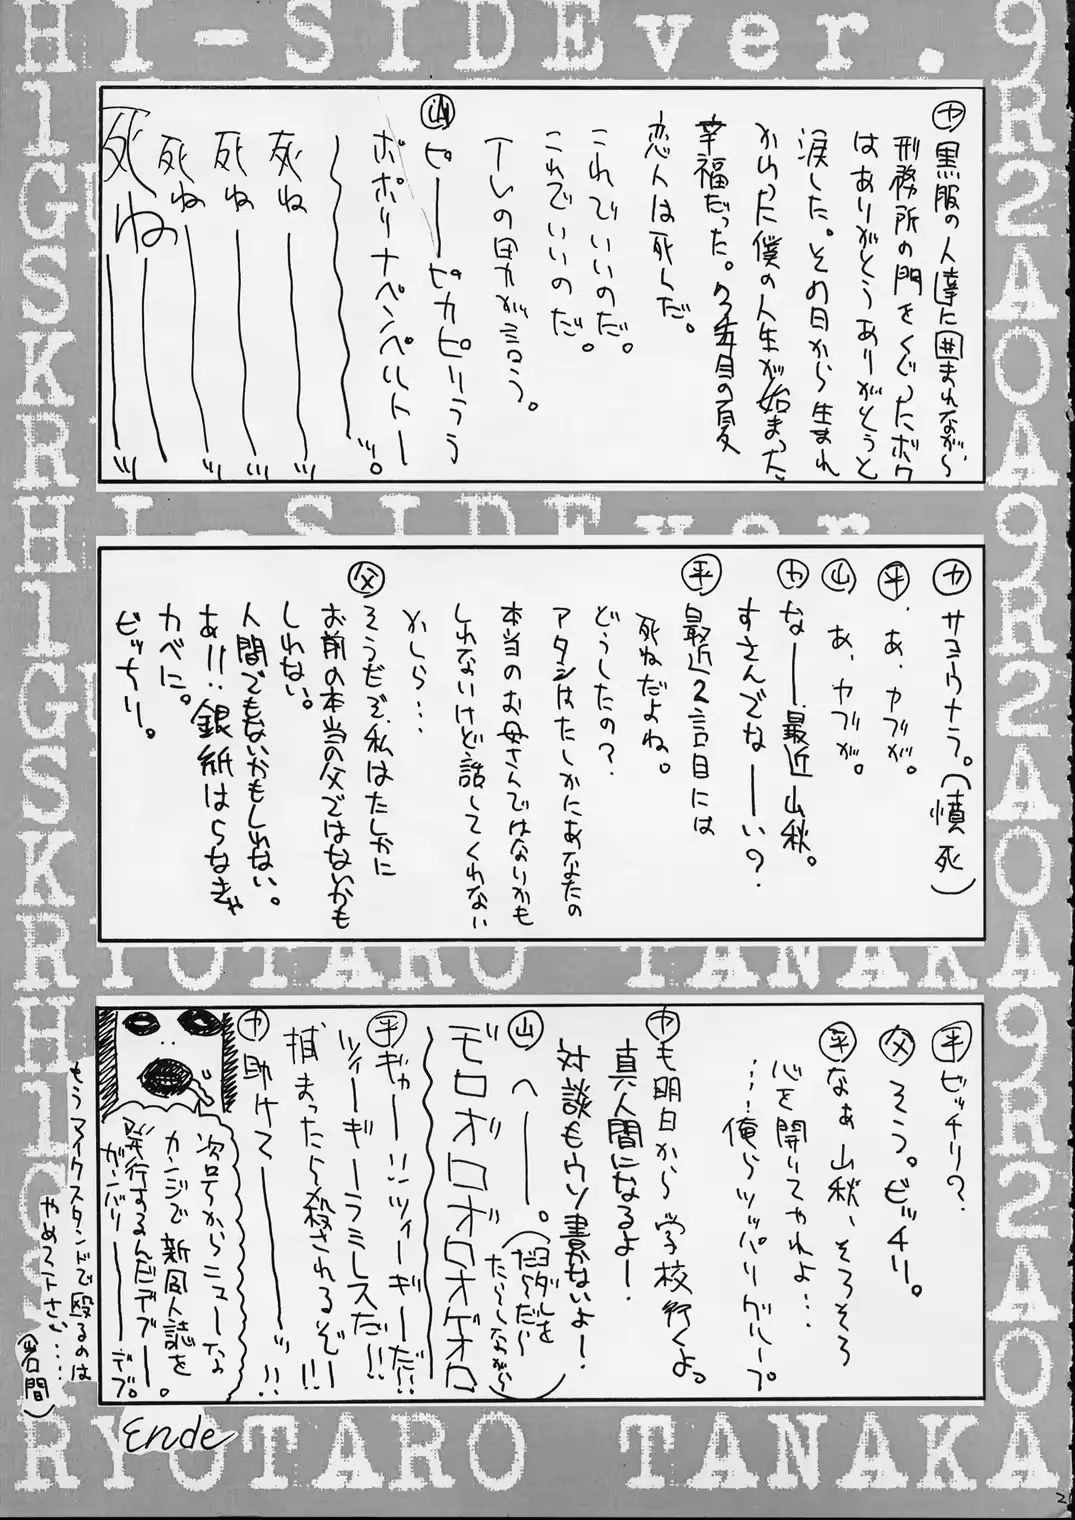 HI-SIDEver.
㋳黒服の人達に囲まれながら、
刑務所の門をくぐったボク
はありがとうありがとうと
涙した。その日から生まれ
かわった僕の人生が始まった
幸福だった。9年目の夏
恋人は死んだ。
これでいいのだ。
これでいいのだ。
ってもう一人の男が言う。
㊤ピーーピカピリララ
ポポリナペンペルトー
〜〜〜〜ッ。
死ね――ッ
死ね――ッ
死ね――ッ
死ね――ッ
HI-SIDEver.
カ サヨウナラ。(憤死)
平 あ、カブが。
山 あ、カブが。
カ なーー最近山秋。
すさんでなーーい?
平 最近2言目には
死ねだよね。
どうしたの?
アタシはたしかにあなたの
本当のお母さんではないかも
しれないけど、話してくれない
かしら…
父 そうだぞ、私はたしかに
お前の本当の父ではないかも
しれない。
人間でもないかもしれない。
あ!!銀紙はらなきゃ
カベに。
ビッチリ。
RYOTARO TANAKA
平 ビッチリ?
父 そう。ビッチリ。
平 なぁ山秋、そろそろ
心を開いてやれよ…
……俺らツッパリグループ
も明日から学校行くよ。
真人間になるよー!
対談もウソ書かないよー!
山 へーーー。(ヨダレを
だらだら
たらしながら)
モロオ゛ロオ゛ロオゲオロ
〜〜〜〜
平 ギャー!!ツィーギーだ!!
ツィーギーラミレスだ!!
捕まったら殺されるぞー!!
カ 助けてーーーッ!!
次号からニューな
カンジで新同人誌を
発行するんだデブー。
ガンバリーーーデブ。
もうマイクスタンドで殴るのは
やめて下さい…
(岩間)
Ende
RYOTARO TANAKA
2